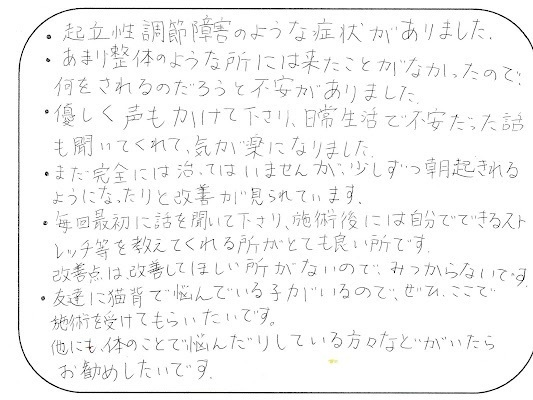 ・起立性調節障害のような症状がありました.
・あまり整体のような所には来たことがなかったので.
何をされるのだろうと不安がありました.
・優しく声もかけて下さり、日常生活で不安だった話
も聞いてくれて、気が楽になりました.
・まだ完全には治ってはいませんが、少しずつ朝起きれる
ようになったりと改善が見られています.
・毎回最初に話を聞いて下さり、施術後には自分でできるスト
レッチ等を教えてくれる所がとても良い所です.
改善点は、改善してほしい所がないので、みつからないです.
・友達に猫背で悩んでいる子がいるので、ぜひ、ここで
施術を受けてもらいたいです。
他にも、体のことで悩んだりしている方々などがいたら
お勧めしたいです.